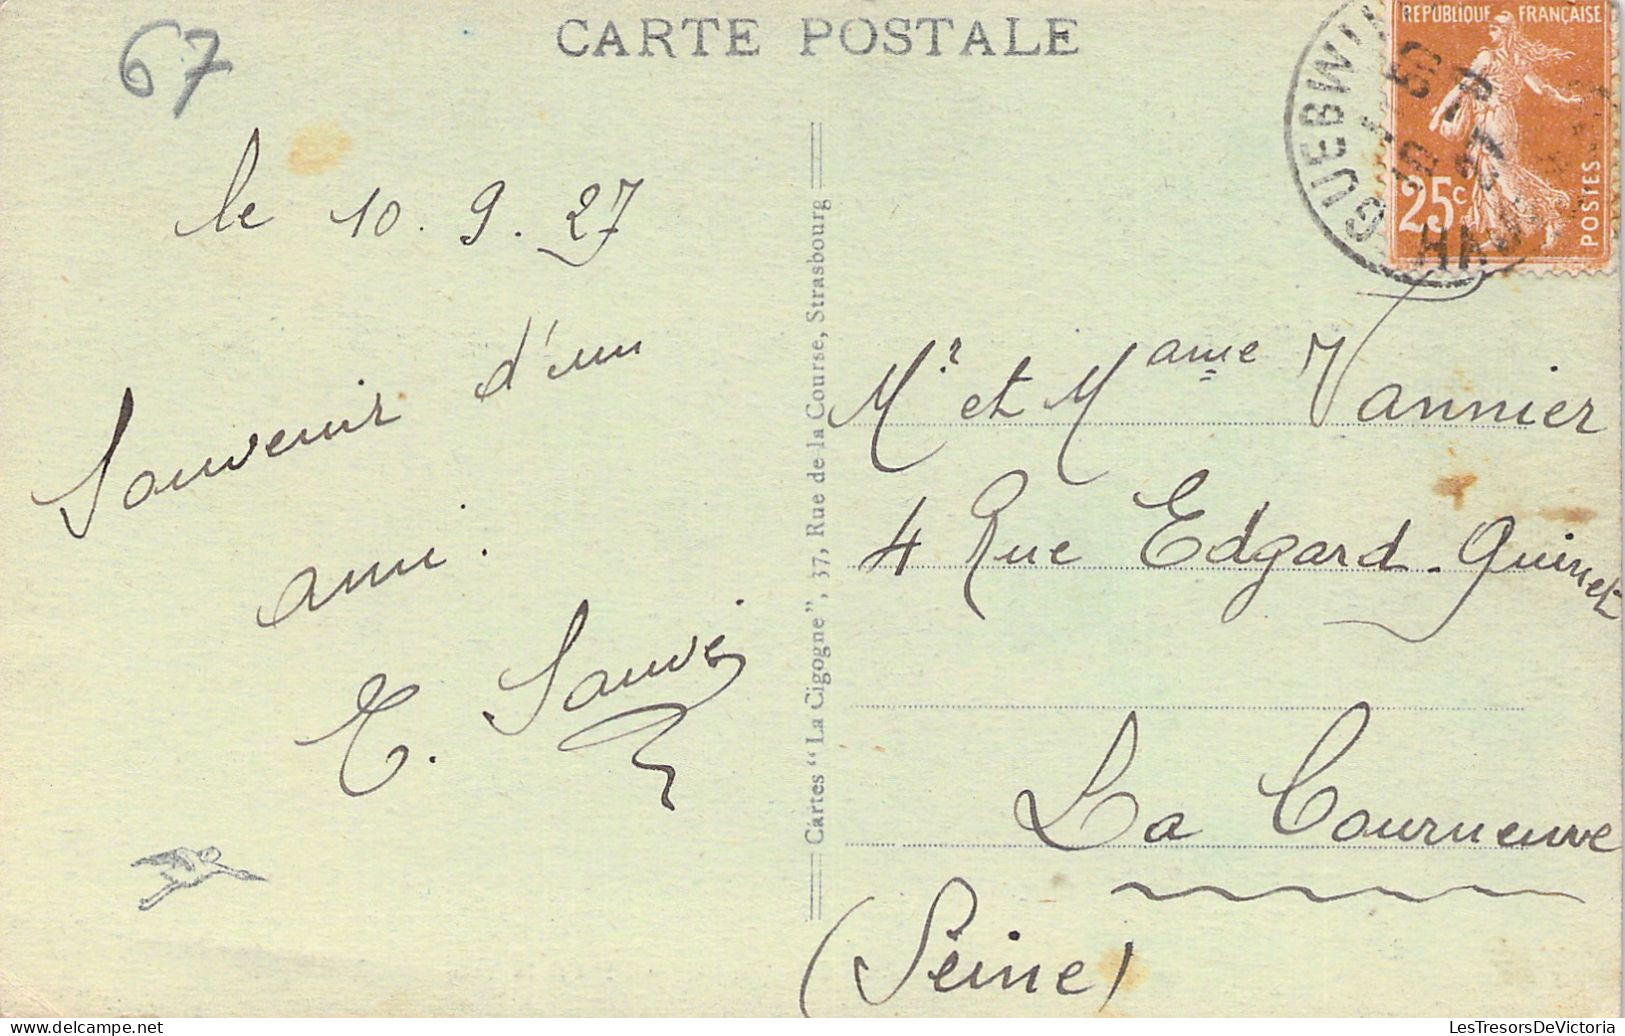 CARTE POSTALE
67
le 10.9.27
Souvenir d'un
ami.
Cartes "La Cigogne", 37, Rue de la Course, Strasbourg
REPUBLIQUE FRANÇAISE
25c
POSTES
GUEBWI
Mr et Mame Vannier
4 Rue Edgard-Quinet
La Courneuve
(Seine)
LesTresorsDeVictoria